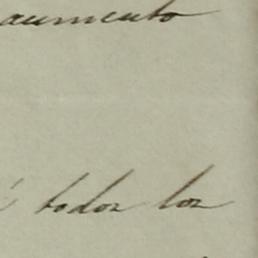 aumento
á todos los